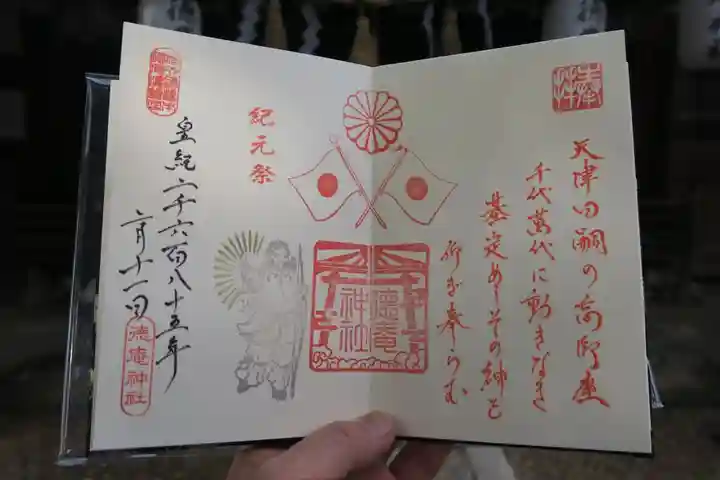 奉拝
天津日嗣の高御座
千代萬代に動きなき
基定めしその神を
仰ぎ奉らむ
徳庵神社
紀元祭
皇紀二千六百八十五年
二月十一日
徳庵神社